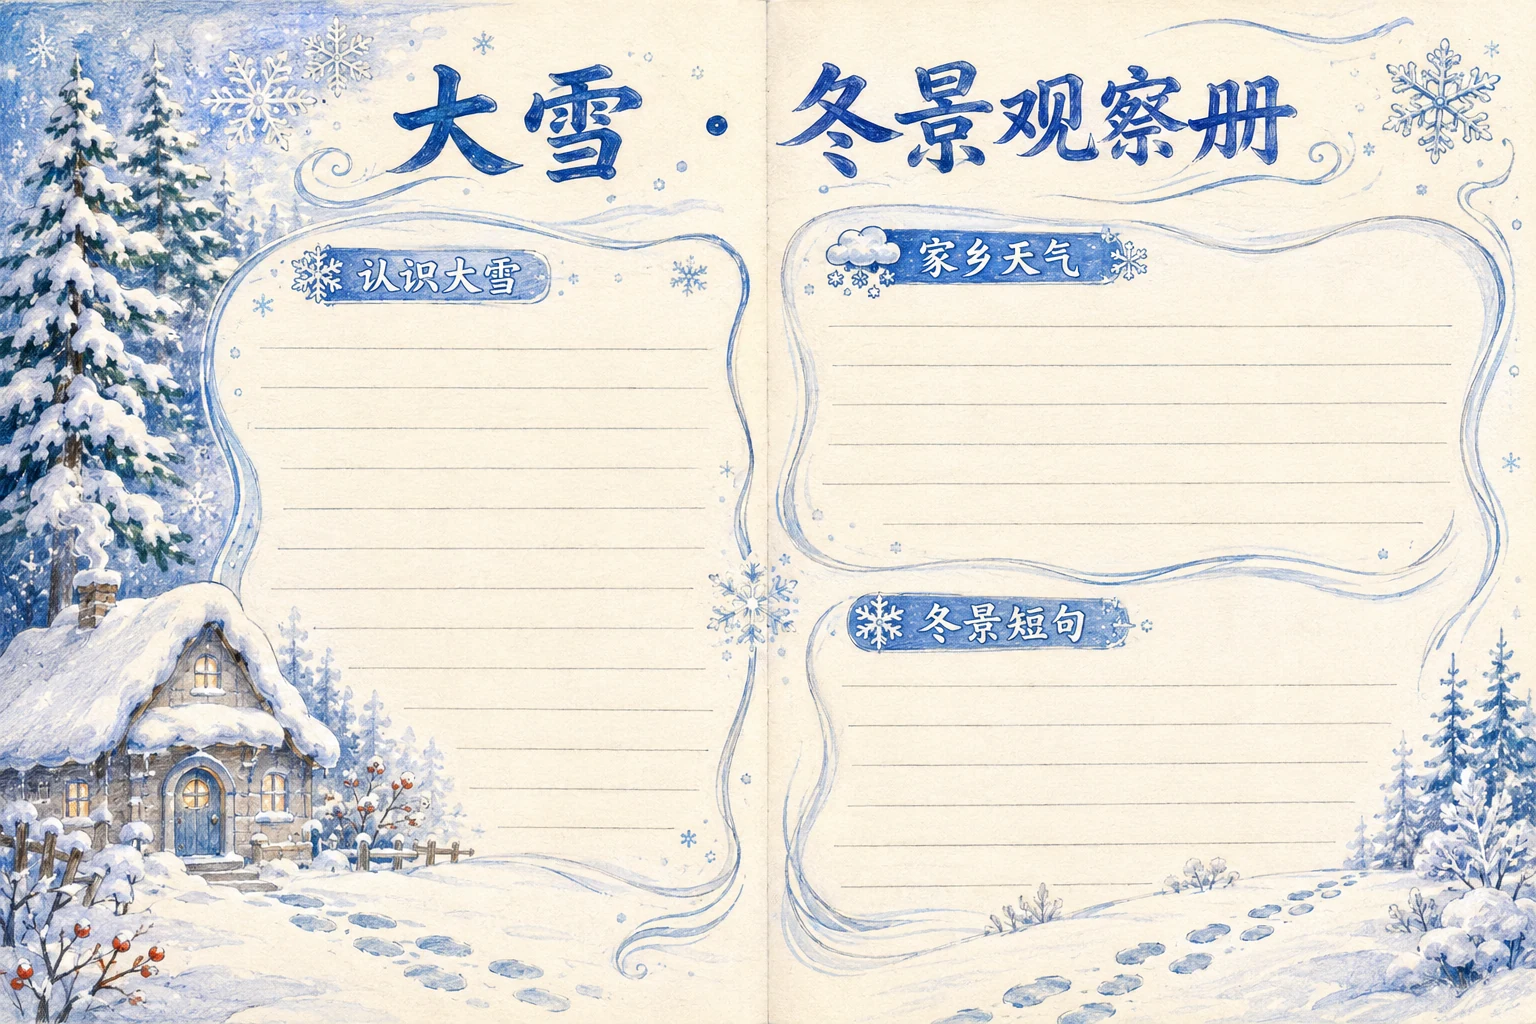 大雪·冬景观察册
认识大雪
家乡天气
冬景短句